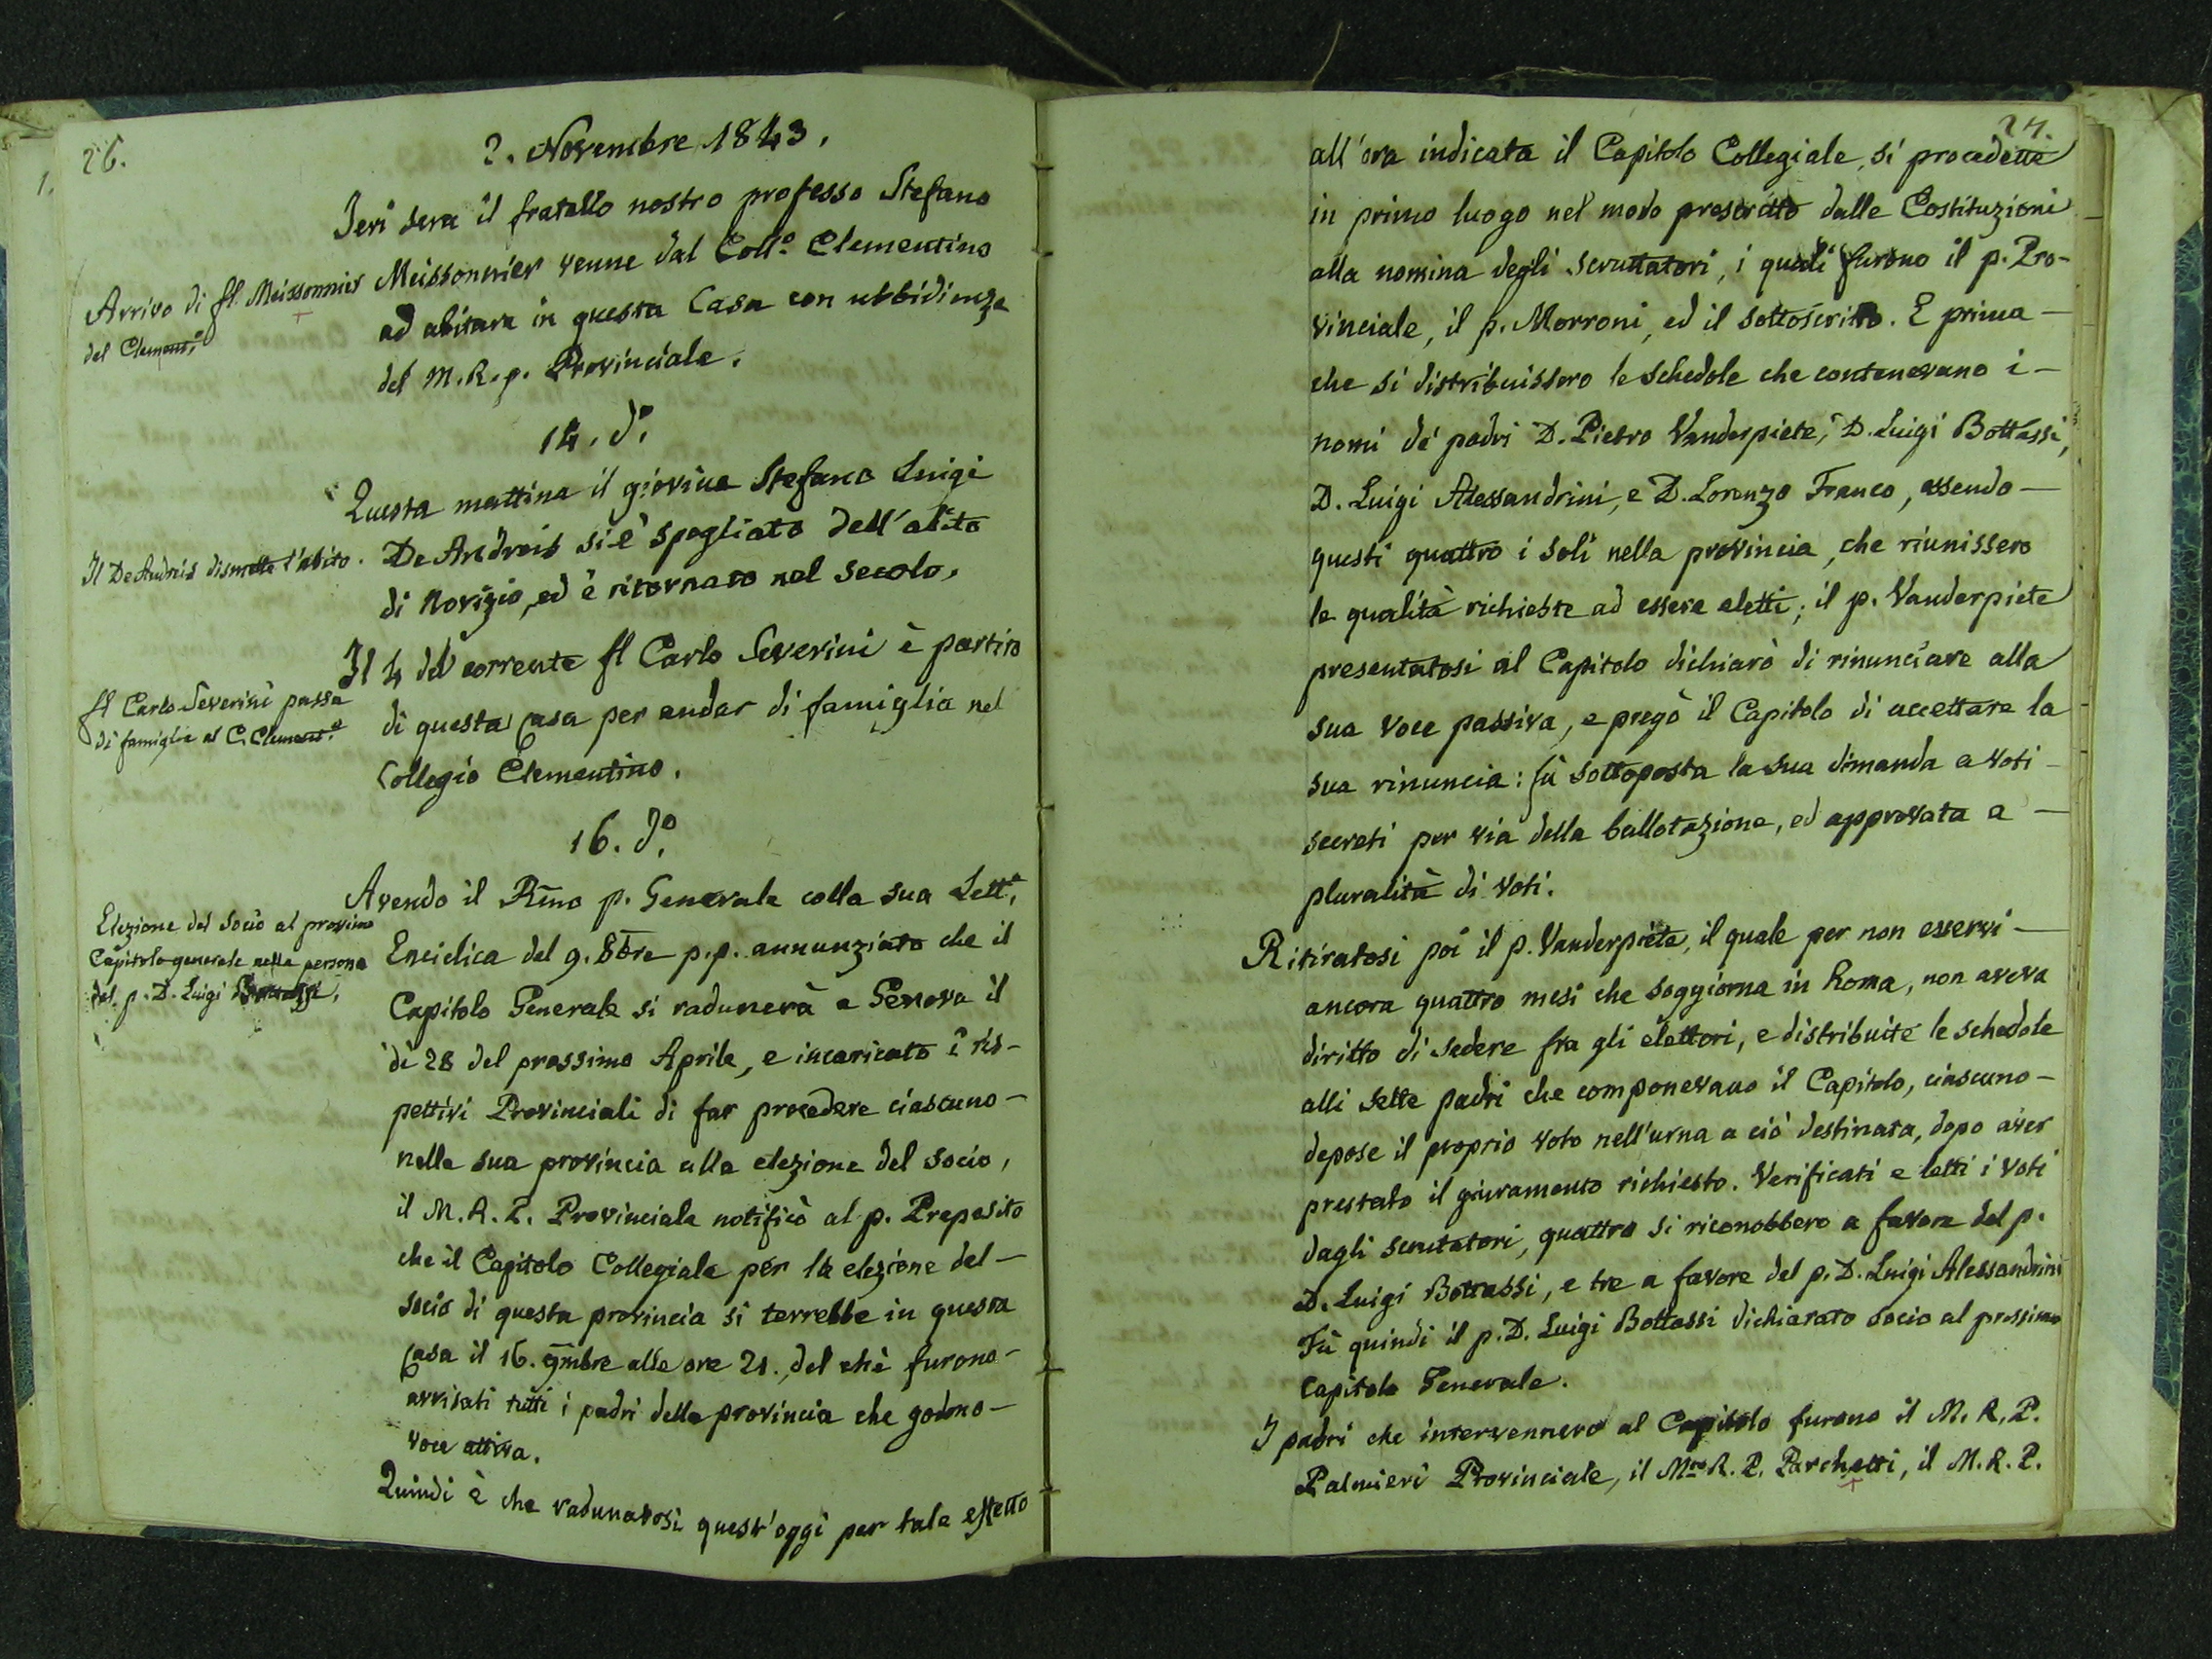 26.
1.
2. Novembre 1843.
Jeri sera il fratello nostro professo Stefano
Arrivo di fl. Meissonnier
dal Clement.º
Meissonnier venne dal Coll.º Clementino
ad abitare in questa Casa con ubbidienza
del M. R. p. Provinciale.
14. dº.
Questa mattina il giovine Stefano Luigi
Il De Andreis dismette l'abito.
De Andreis si è spogliato dell'abito
di Novizio, ed è ritornato nel secolo.
Il 4 del corrente fl Carlo Severini è partito
fl Carlo Severini passa
di famiglia al C. Clement.º
di questa Casa per andar di famiglia nel
Collegio Clementino.
16. dº.
Avendo il Rmo p. Generale colla sua Lett.ª
Elezione del Socio al provimo
Capitolo generale nella persona
del p. D. Luigi Bottassi.
Enciclica del 9. 8bre p.p. annunziato che il
Capitolo Generale si radunerà a Genova il
dì 28 del prossimo Aprile, e incaricato i ris-
pettivi Provinciali di far procedere ciascuno -
nella sua provincia alla elezione del socio,
il M. R. P. Provinciale notificò al p. Preposito
che il Capitolo Collegiale per la elezione del -
socio di questa provincia si terrebbe in questa
Casa il 16. 9mbre alle ore 21., del chè furono -
avvisati tutti i padri della provincia che godono -
voce attiva.
Quindi è che radunatosi quest'oggi per tale effetto
27.
all'ora indicata il Capitolo Collegiale, si procedette
in primo luogo nel modo prescritto dalle Costituzioni
alla nomina degli scruttatori, i quali furono il p. Pro-
vinciale, il p. Morroni, ed il sottoscritto. E prima -
che si distribuissero le schedole che contenevano i -
nomi de' padri D. Pietro Vanderpiete, D. Luigi Bottassi,
D. Luigi Alessandrini, e D. Lorenzo Franco, essendo -
questi quattro i soli nella provincia, che riunissero
le qualità richieste ad essere eletti; il p. Vanderpiete
presentatosi al Capitolo dichiarò di rinunciare alla
sua voce passiva, e pregò il Capitolo di accettare la
sua rinuncia: fù sottoposta la sua dimanda a voti -
secreti per via della ballotazione, ed approvata a -
pluralità di voti.
Ritiratosi poi il p. Vanderpiete, il quale per non esservi -
ancora quattro mesi che soggiorna in Roma, non aveva
diritto di sedere fra gli elettori, e distribuite le schedole
alli sette padri che componevano il Capitolo, ciascuno -
depose il proprio voto nell'urna a ciò destinata, dopo aver
prestato il giuramento richiesto. Verificati e letti i voti
dagli scrutatori, quattro si riconobbero a favore del p.
D. Luigi Bottassi, e tre a favore del p. D. Luigi Alessandrini
Fù quindi il p. D. Luigi Bottassi dichiarato socio al prossimo
Capitolo Generale.
I padri che intervennero al Capitolo furono il M. R. P.
Palmieri Provinciale, il Mto R. P. Parchetti, il M. R. P.